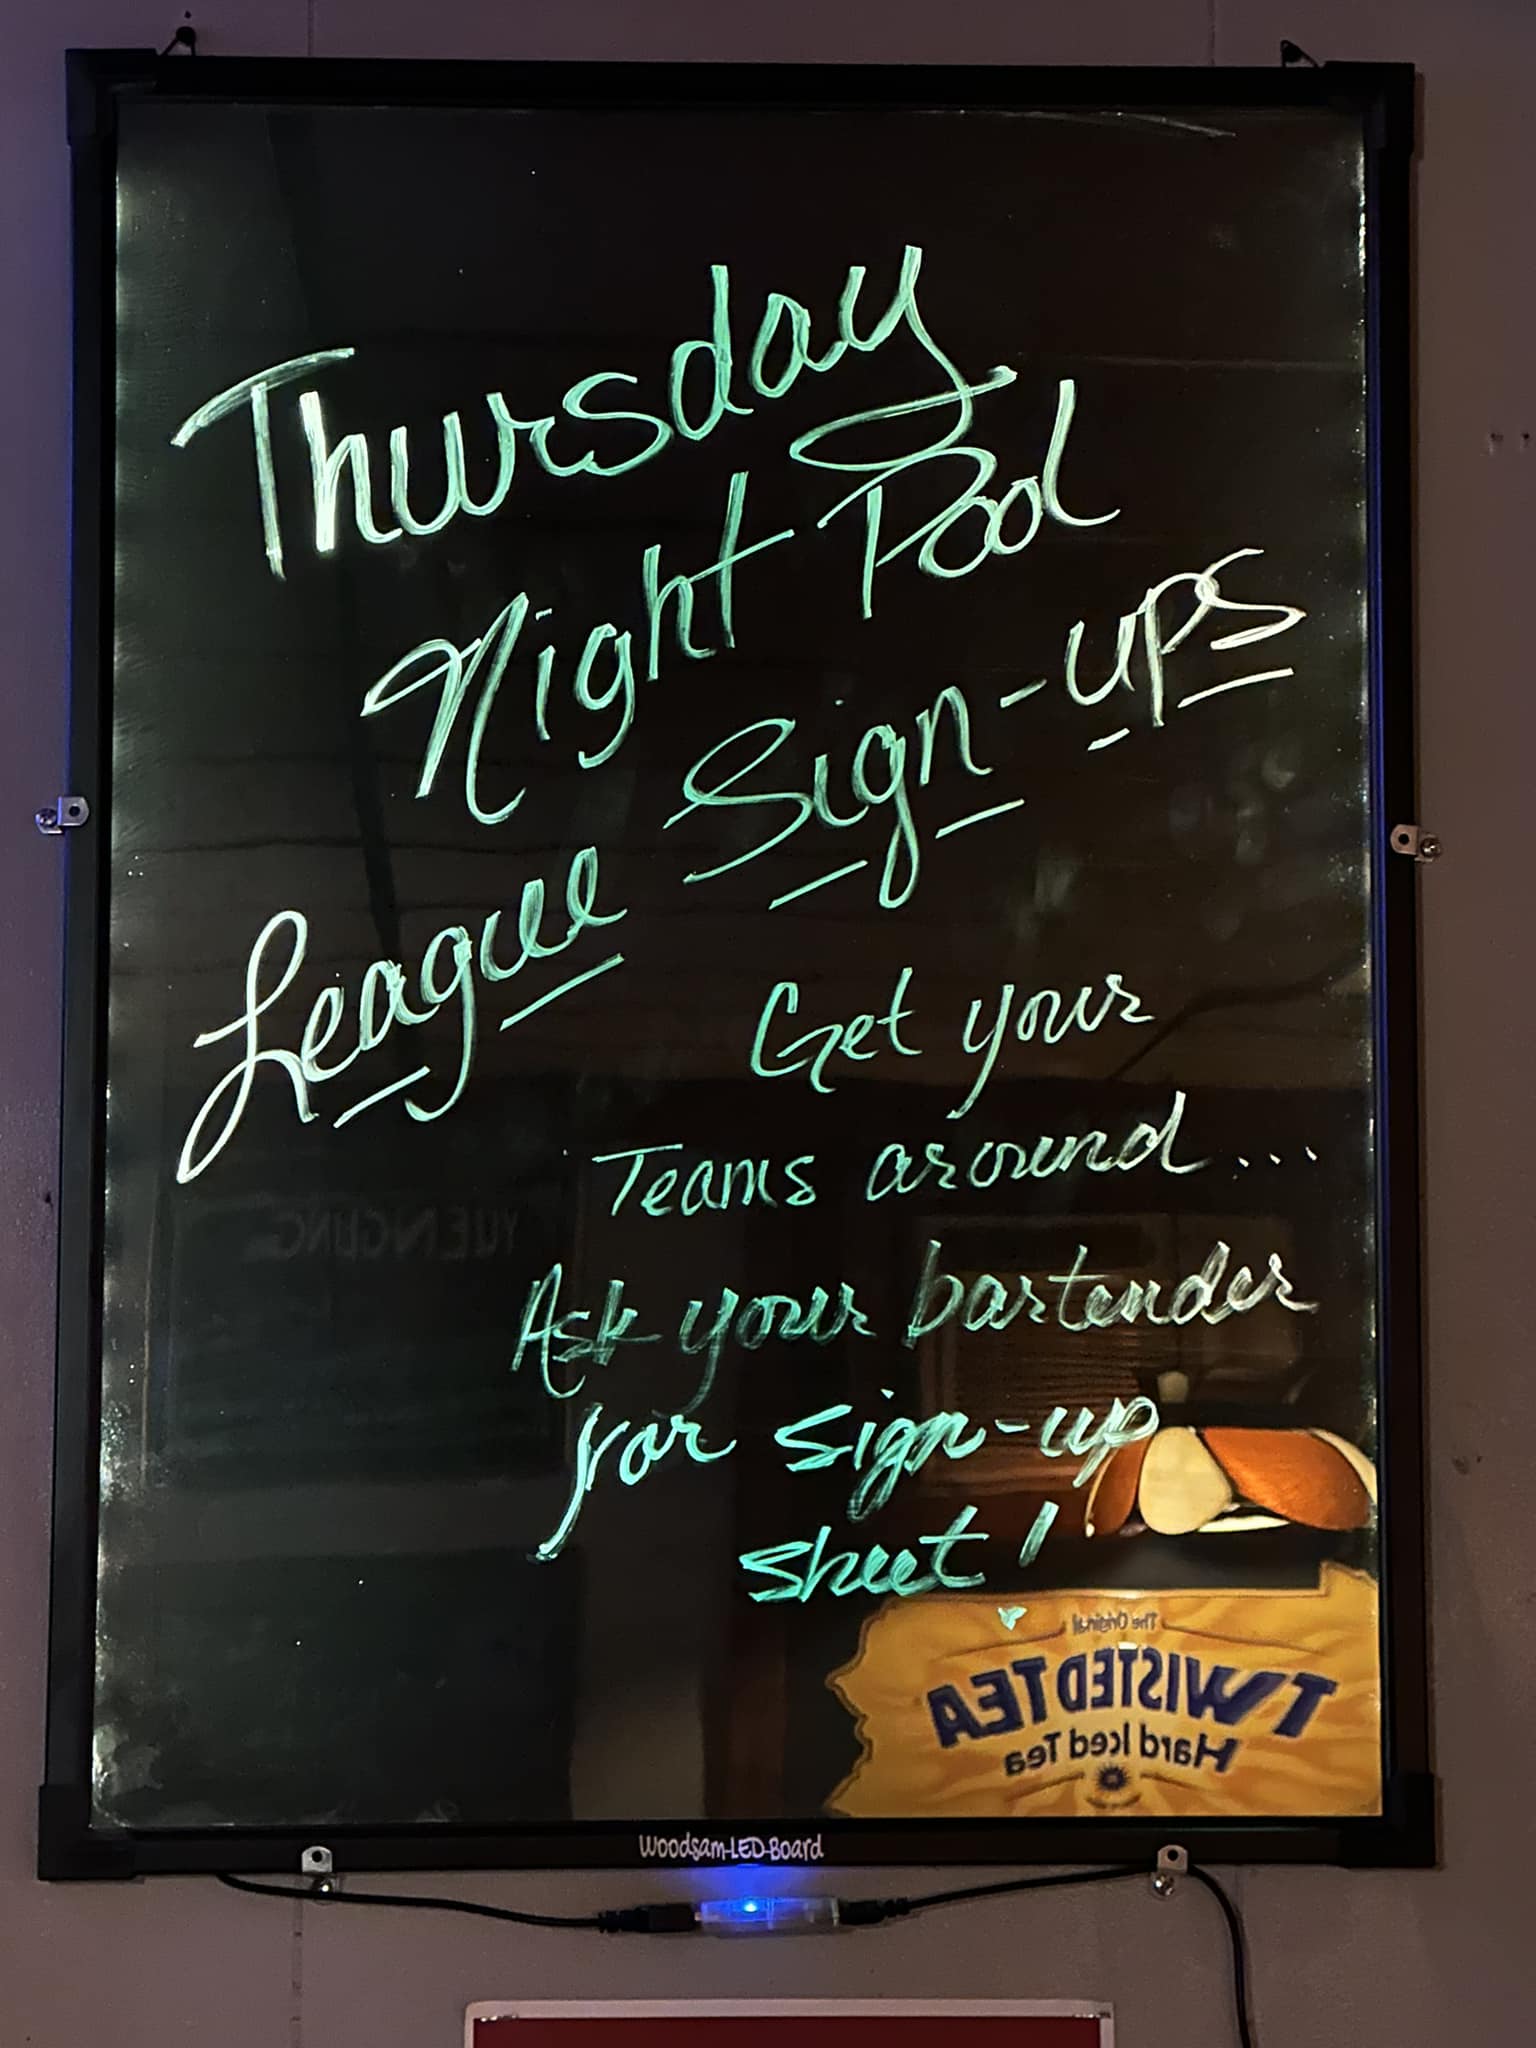 Thursday
Night Pool
League Sign-ups
Get your
Teams around...
Ask your bartender
for sign-up
sheet!
YUENGLING
The Original
TWISTED TEA
Hard Iced Tea
Woodsam-LED-Board